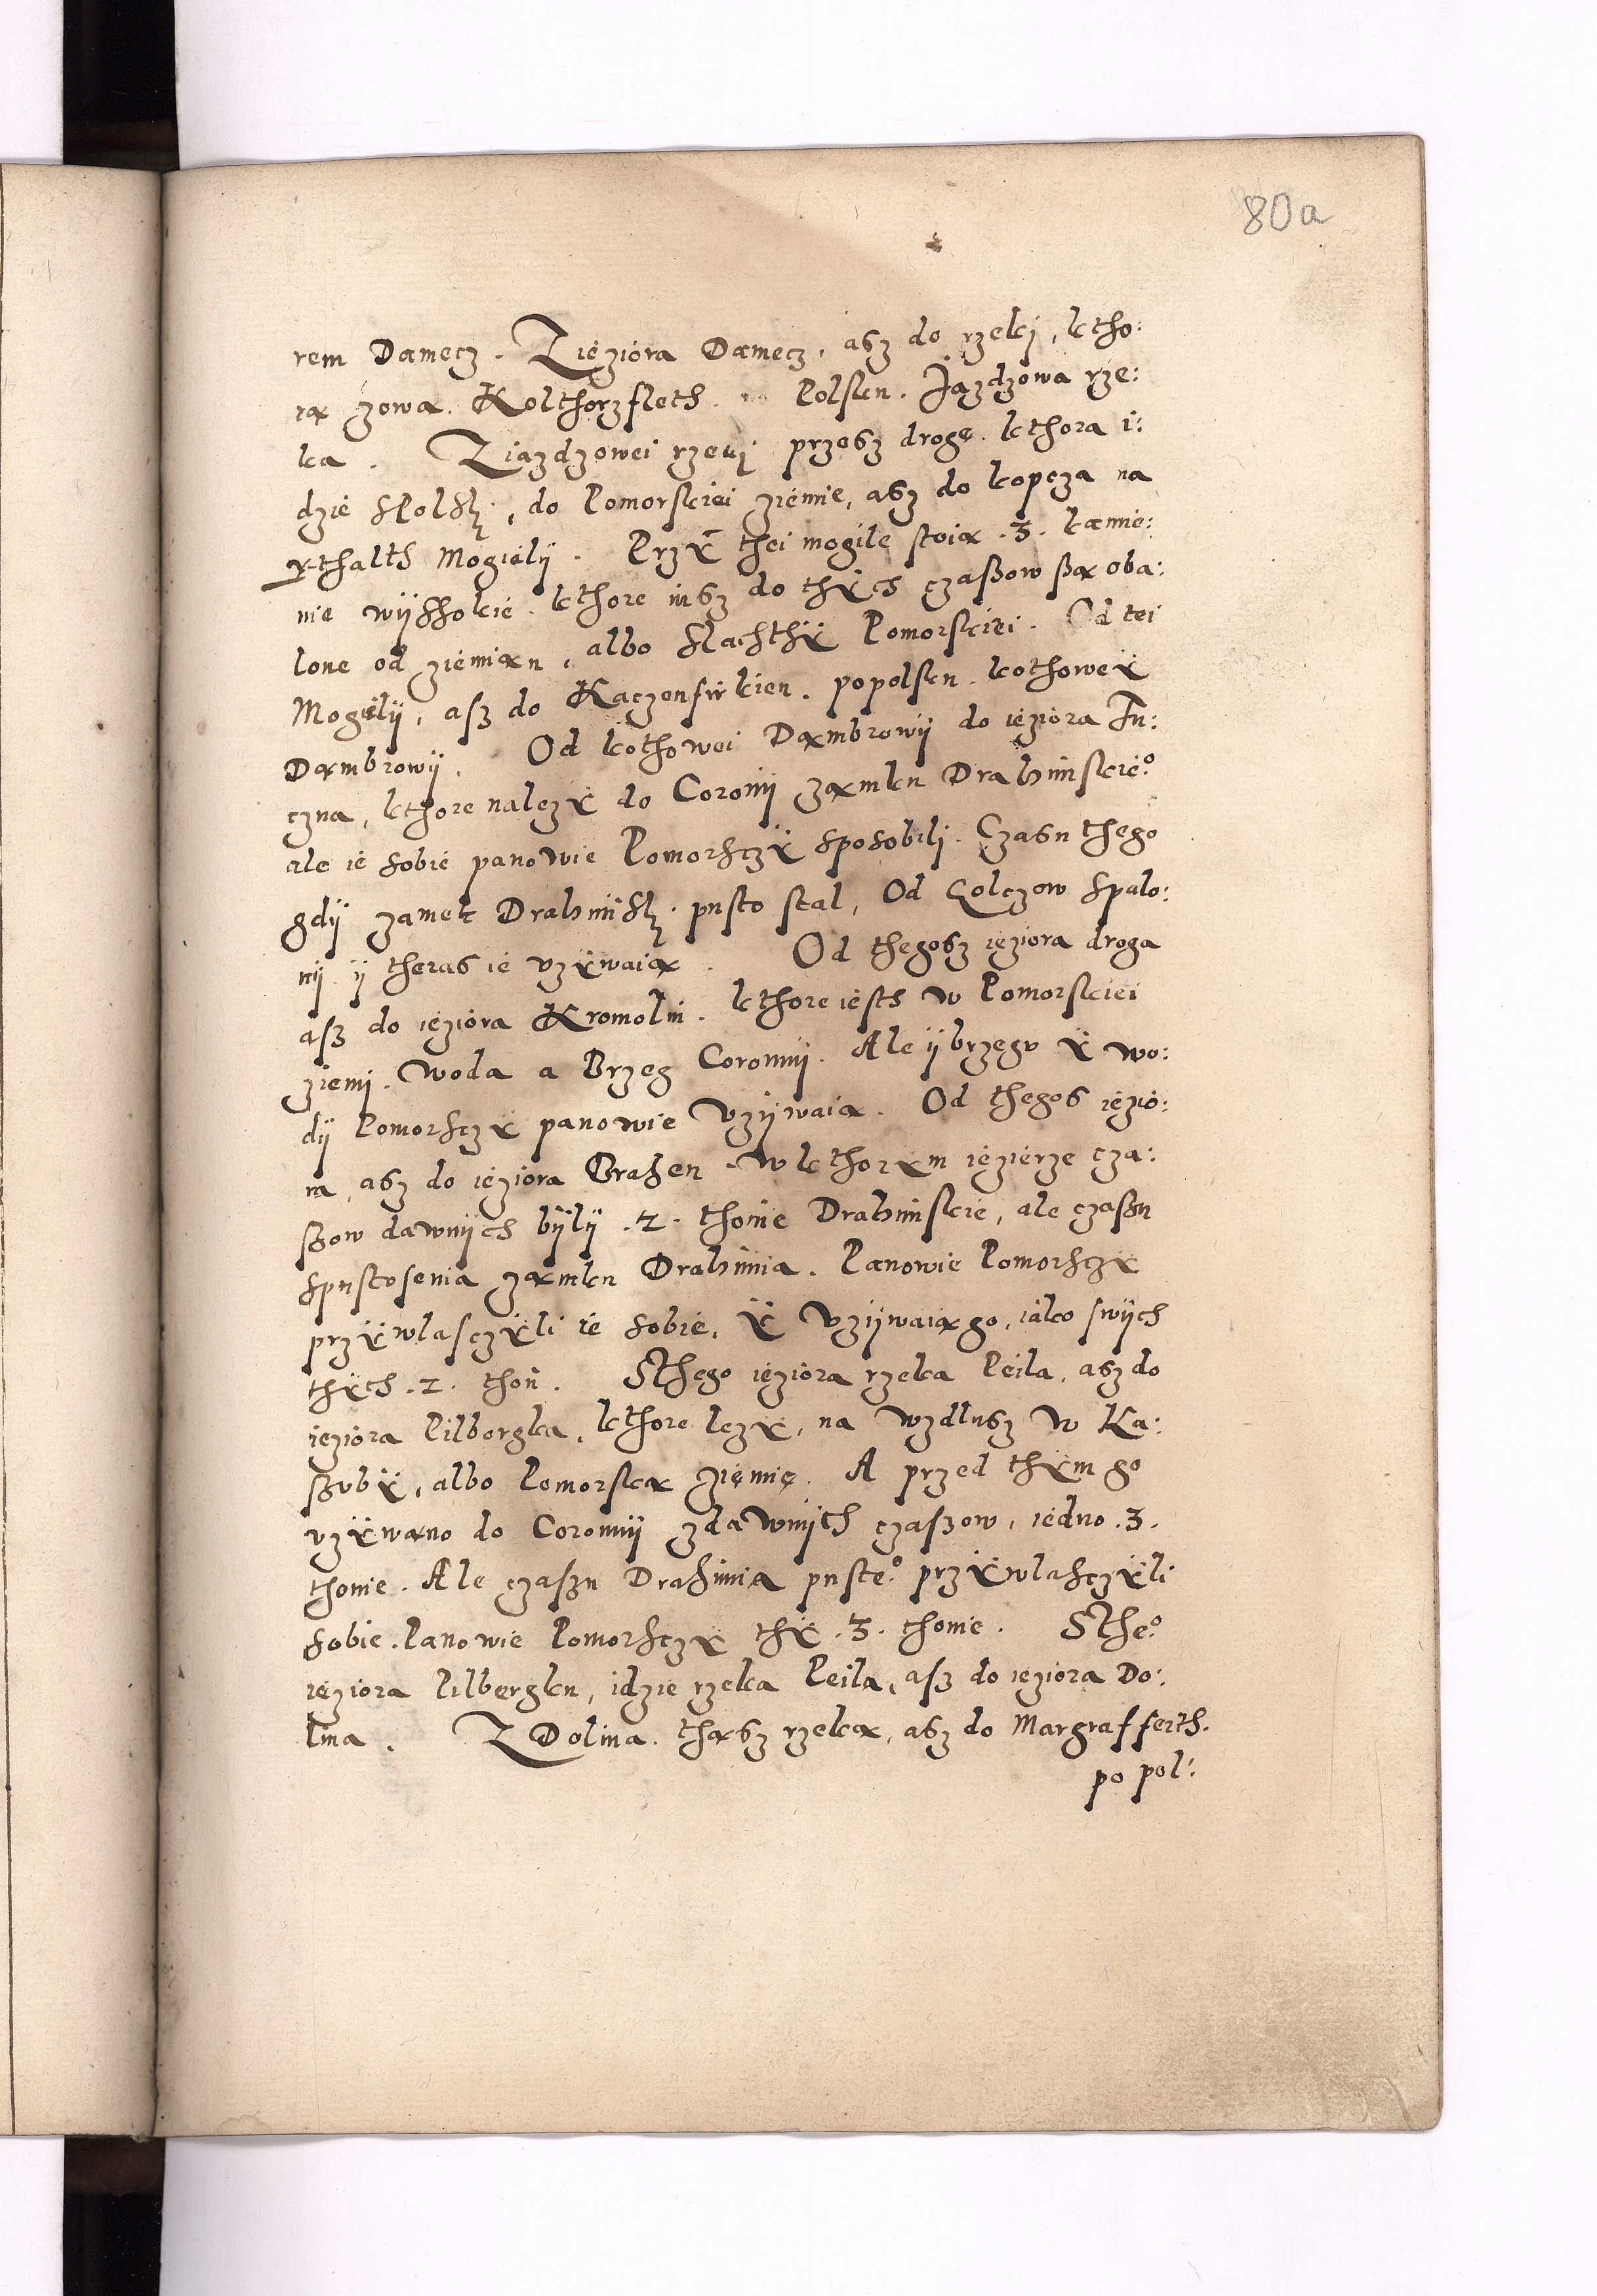 80a
rem Damecz. Z ięziora Damecz, asz do rzeki, ktho:
rą zowa. Kolthorzfleth. Polsku. Jazdzowa rze:
ka. Z iazdzowei rzeki przesz drogę. kthora i:
dzie sPolsk., do Pomorskiei ziemie, asz do kopcza na
xthalth Mogiëlÿ. Przÿ thei mogile stoią .3. kamie:
nie wÿssokie. kthore iusz do thÿch czassow są oba:
lone od ziemian, albo slachthÿ Pomorskiei. Od tei
Mogiëlÿ, asz do Kaczensirkien. popolsku. kothoweÿ
Dambrowÿ. Od kothowei Dambrowÿ do ięziora Tu:
czna, kthore należÿ do Coronÿ zamku Drahimskie°
ale ie sobie panowie Pomorsczÿ sposobili. Czasu thego
gdÿ zamek Drahimsk. pusto stal, Od Polczow spalo:
nÿ ÿ theras ie vzÿwaią. Od thegosz ięziora droga
asz do ięziora Kromolin. kthore iesth w Pomorskiei
ziemi. Woda a Brzeg Coronnÿ. Ale ÿ brzegv ÿ wo:
dÿ Pomorsczÿ panowie Vzÿwaia. Od thegos ięzio:
ra, asz do ięziora Brahen. w kthorÿm ięzierze cza:
szow dawnÿch bÿlÿ .2. thonie Drahimskie, ale czaszu
spustosenia zamku Drahimia. Panowie Pomorsczÿ
przÿwlasczÿli ie sobie, ÿ Vzÿwaią go, iako swÿch
thÿch .2. thoń. S thego ięziora rzeka Peila, asz do
ięziora Pilborgka, kthore leżÿ, na wzdlusz w Ka:
szubÿ, albo Pomorską ziemię. A przed thÿm go
vzÿwano do Coronnÿ zdawnÿch czaszow, iedno .3.
thonie. Ale czaszu Drahimia puste° przÿwlasczÿli
sobie. Panowie Pomorsczÿ thÿ .3. thonie. S the°
ięziora Pilbergku, idzie rzeka Peila, asz do ięziora Do:
lina. Z Dolina. thąsz rzeką, asz do Margrafferth.
po pol: